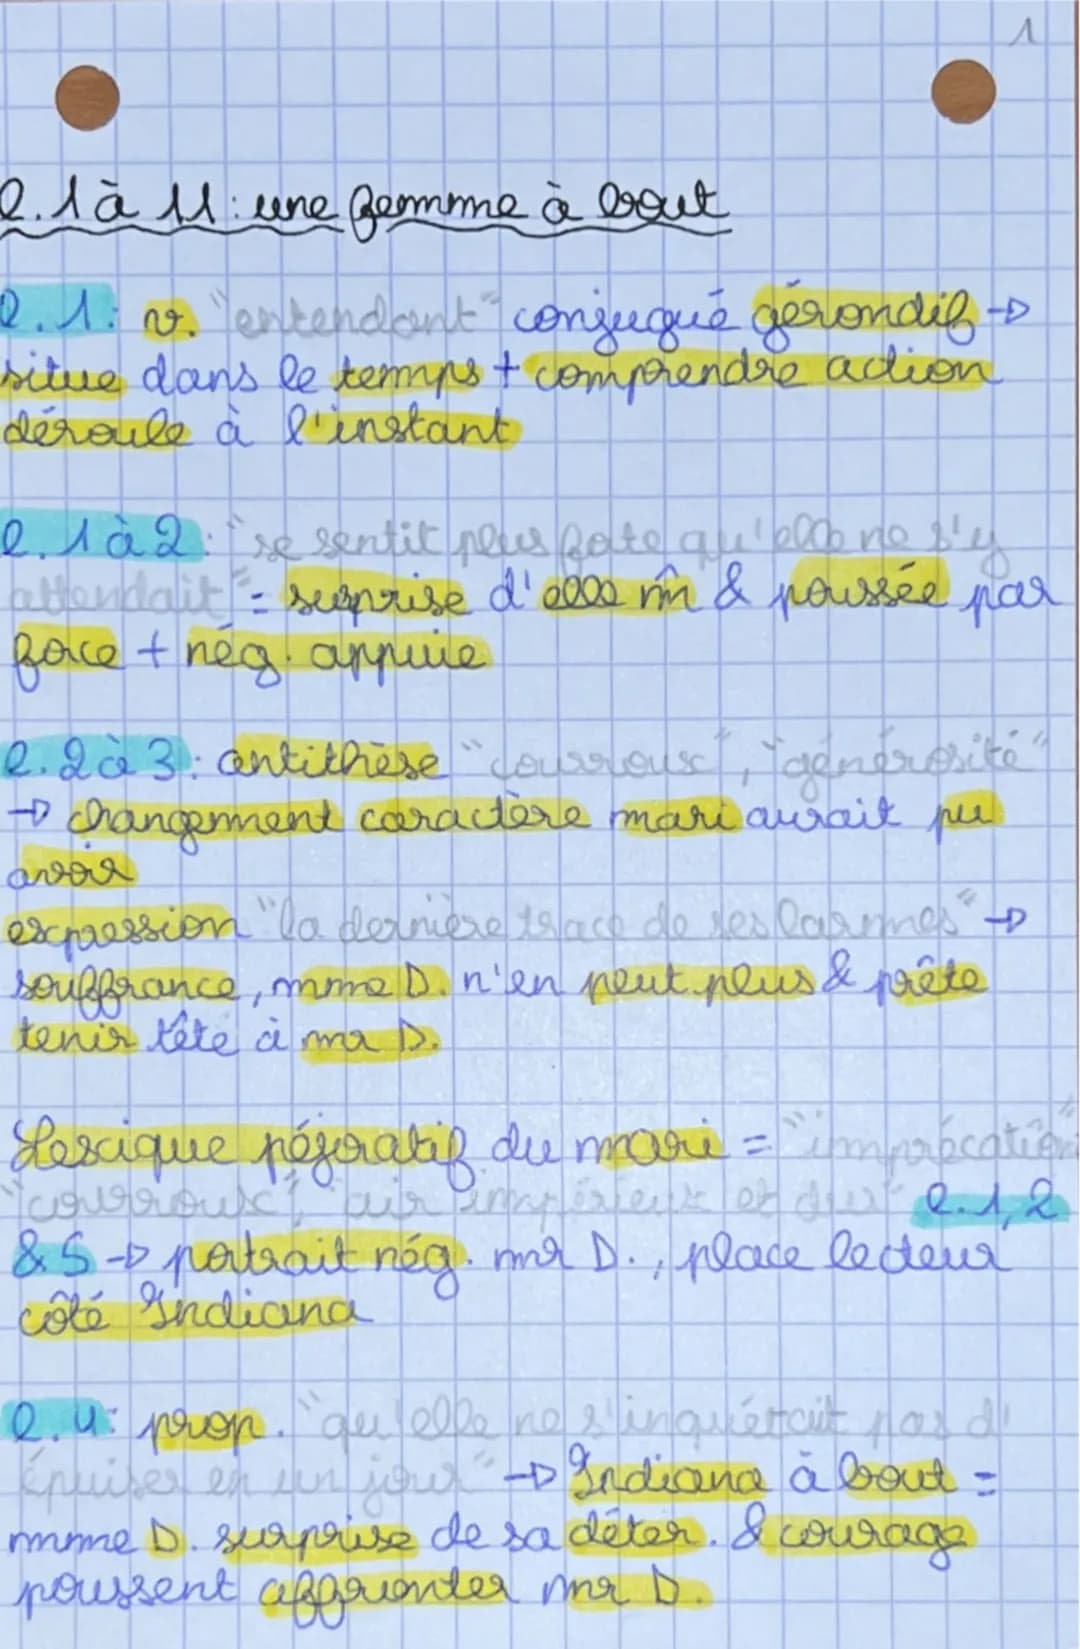 1
l. 1 à 11 : une femme à bout
l. 1 : v. "entendant" conjugué gérondif →
situe dans le temps + comprendre action
déroule à l'instant
l. 1 à 2 : "se sentit plus forte qu'elle ne s'y
attendait" = surprise d'elle m̂ & poussée par
force + nég. appuie
l. 2 à 3 : antithèse "courroux", "générosité"
→ changement caractère mari aurait pu
avoir
expression "la dernière trace de ses larmes" →
souffrance, mme D. n'en peut plus & prête
tenir tête à mr D.
Lexique péjoratif du mari = "imprécation"
"courroux", "air impérieux et dur" l. 1, 2
& 5 → portrait nég. mr D., place lecteur
côté Indiana
l. 4 : prop. "qu'elle ne s'inquiétait pas d'
épuiser en un jour" → Indiana à bout =
mme D. surprise de sa déter. & courage
poussent affronter mr D.